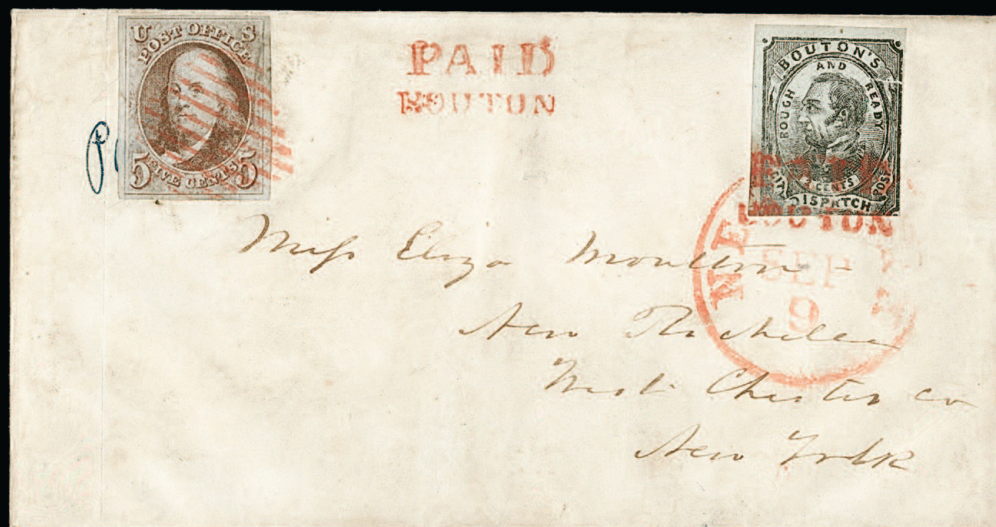 U S
POST OFFICE
5 FIVE CENTS 5
PAID
BOUTON
BOUTON'S
AND
ROUGH READY
2 CENTS
CITY DISPATCH POST
BOUTON
NEW
SEP
9
Miss Eliza Moulton
New Rochelle
West Chester co
New York